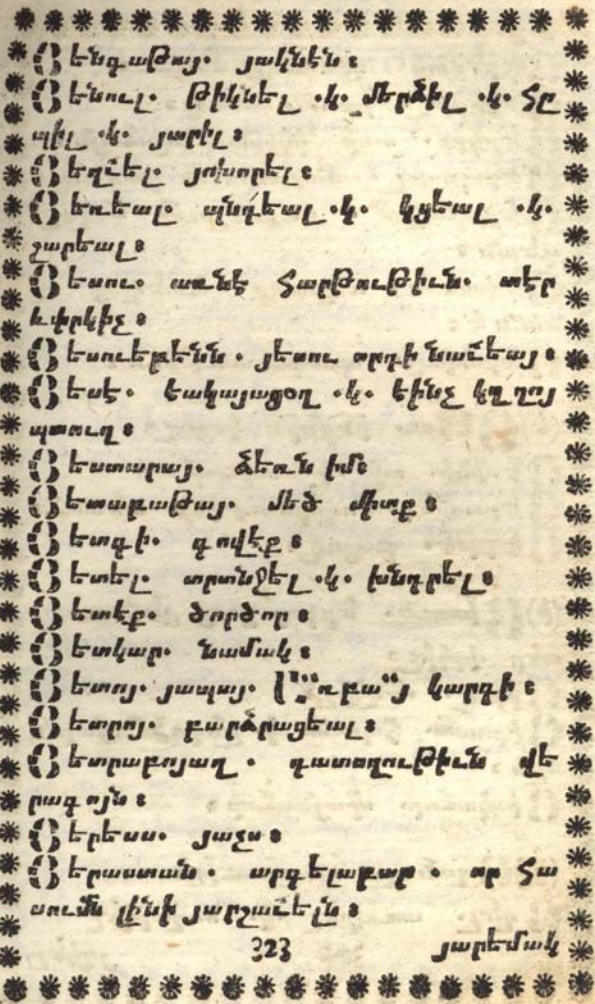 Յենգաթայ. յակնէն։
Յենուլ. թիկնել .կ. մերձիլ .կ. հը
պիլ .կ. յարիլ։
Յեղւել. յոխորել։
Յեռեալ. պնդեալ .կ. կցեալ .կ.
շարեալ։
Յեսու. առնէ հարթութիւն. տէր
և փրկիչ։
Յեսուեթենն. յեսու որդի նաւեայ։
Յեսէ. եակայացօղ .կ. եինչ կղղոյ
պտուղ։
Յեստարայ. ձեռն իմ։
Յետաբաթայ. մեծ միտք։
Յետգի. գովէք։
Յետել. տրտնջել .կ. խնդրել։
Յետէք. ծործոր։
Յետկար. նամակ։
Յետոյ. յապայ. կարգի։
Յետրոյ. բարձրացեալ։
Յետրաբոյաղ. դատաղութիւն վե
րագոյն։
Յերեսս. յաչս։
Յերաստան. արգելաքար. որ հա
սումն լինի յարշաւելն։
323 յարեմակ